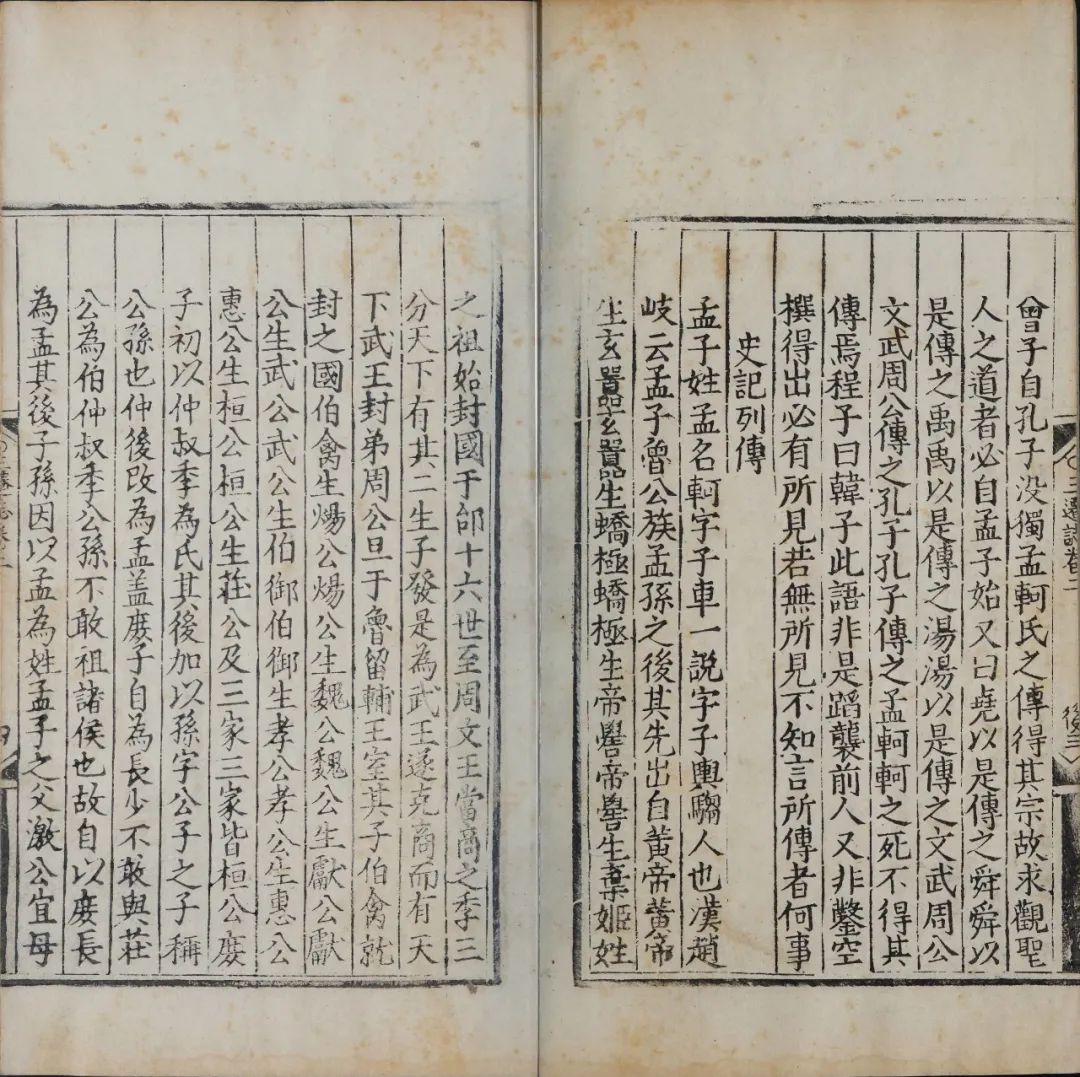 三遷誌卷二
後三
曾子自孔子没獨孟軻氏之傳得其宗故求觀聖
人之道者必自孟子始又曰堯以是傳之舜舜以
是傳之禹禹以是傳之湯湯以是傳之文武周公
文武周公傳之孔子孔子傳之孟軻軻之死不得其
傳焉程子曰韓子此語非是蹈襲前人又非鑿空
撰得出必有所見若無所見不知言所傳者何事
史記列傳
孟子姓孟名軻字子車一説字子輿騶人也漢趙
岐云孟子魯公族孟孫之後其先出自黃帝黃帝
生玄囂玄囂生蟜極蟜極生帝嚳帝嚳生棄姬姓
之祖始封國于邰十六世至周文王當商之季三
分天下有其二生子發是為武王遂克商而有天
下武王封弟周公旦于魯留輔王室其子伯禽就
封之國伯禽生煬公煬公生魏公魏公生獻公獻
公生武公武公生伯御伯御生孝公孝公生惠公
惠公生桓公桓公生莊公及三家三家皆桓公庻
子初以仲叔季為氏其後加以孫字公子之子稱
公孫也仲後改為孟盖庻子自為長少不敢與莊
公為伯仲叔季公孫不敢祖諸侯也故自以庻長
為孟其後子孫因以孟為姓孟子之父激公宜母